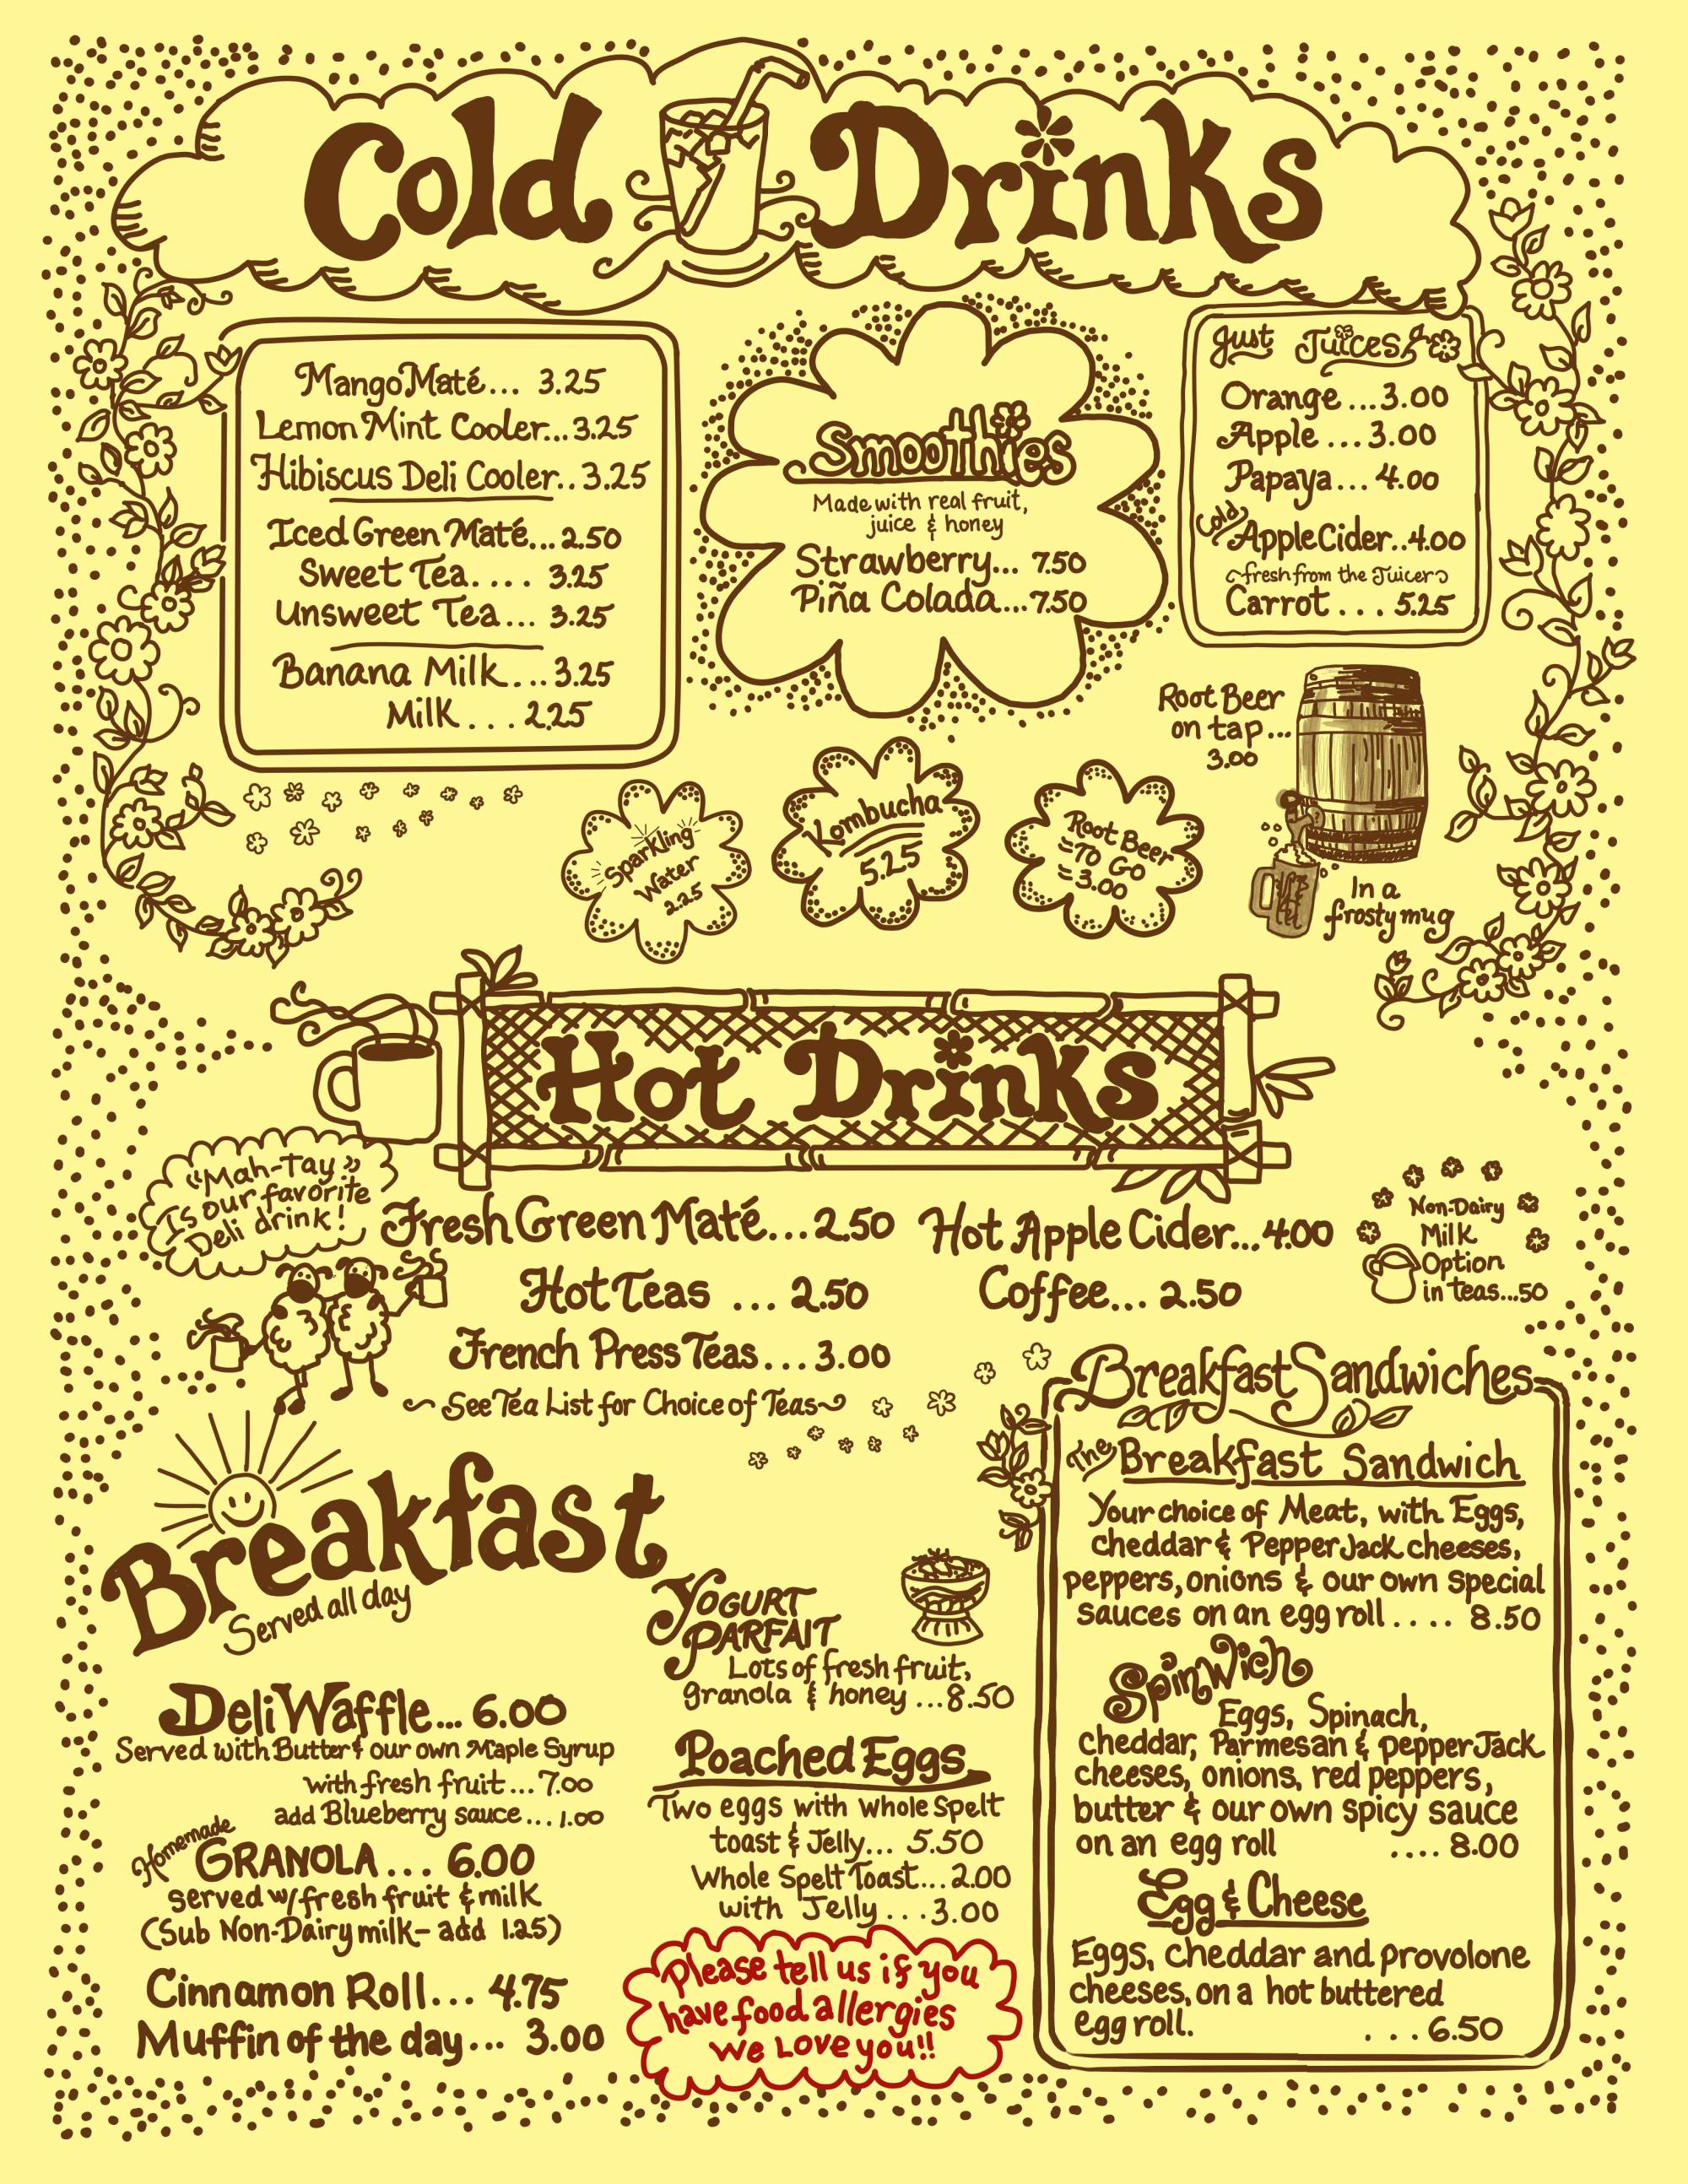 Cold Drinks
Mango Maté... 3.25
Lemon Mint Cooler...3.25
Hibiscus Deli Cooler..3.25
Iced Green Maté...2.50
Sweet Tea.... 3.25
Unsweet Tea... 3.25
Banana Milk....3.25
Milk...2.25
Smoothies
Made with real fruit,
juice & honey
Strawberry... 7.50
Piña Colada...7.50
Just Juices
Orange...3.00
Apple...3.00
Papaya...4.00
Cold Apple Cider..4.00
~fresh from the Juicer~
Carrot...5.25
Root Beer
on tap...
3.00
In a
frosty mug
Sparkling
Water
2.25
Kombucha
5.25
Root Beer
To Go
3.00
Hot Drinks
"Mah-Tay"
Is our favorite
Deli drink!
Fresh Green Maté...2.50
Hot Teas ... 2.50
French Press Teas...3.00
~See Tea List for Choice of Teas~
Hot Apple Cider...4.00
Coffee... 2.50
Non-Dairy
Milk
Option
in teas...50
Breakfast
Served all day
Deli Waffle... 6.00
Served with Butter & our own Maple Syrup
with fresh fruit...7.00
add Blueberry sauce...1.00
Homemade
GRANOLA... 6.00
served w/fresh fruit & milk
(Sub Non-Dairy milk- add 1.25)
Cinnamon Roll... 4.75
Muffin of the day... 3.00
YOGURT
PARFAIT
Lots of fresh fruit,
granola & honey...8.50
Poached Eggs
Two eggs with whole Spelt
toast & Jelly... 5.50
Whole Spelt Toast...2.00
with Jelly...3.00
Please tell us if you
have food allergies
We Love you!!
Breakfast Sandwiches
The Breakfast Sandwich
Your choice of Meat, with Eggs,
cheddar & Pepper Jack cheeses,
peppers, onions & our own special
sauces on an egg roll.... 8.50
SpinWich
Eggs, Spinach,
cheddar, Parmesan & pepper Jack
cheeses, onions, red peppers,
butter & our own spicy sauce
on an egg roll .... 8.00
Egg & Cheese
Eggs, cheddar and provolone
cheeses, on a hot buttered
egg roll. ...6.50